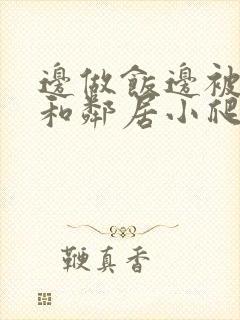 邊做飯邊被
和鄰居小爬
鞭真香